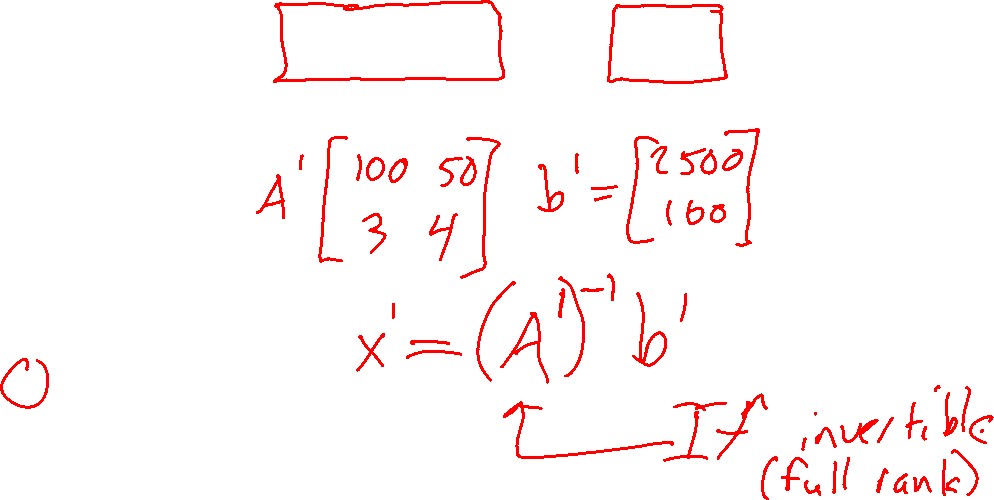 A' [100 50 b' = [2500
3 4] 100]
x' = (A')⁻¹ b'
If invertible
(full rank)